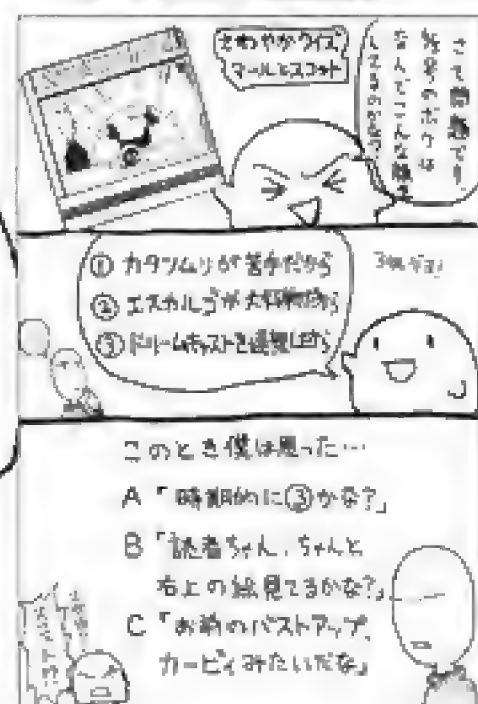 さわやかクイズ
マールとスコット
さて問題です!
なんでこんな顔を
① カタツムリが苦手だから
② エスカルゴが大好物だから
③ ドリームキャストを連想したから
このとき僕は思った…
A「時期的に③かな?」
B「読者ちゃん、ちゃんと
右上の絵見てるかな?」
C「お前のバストアップ、
カービィみたいだな」